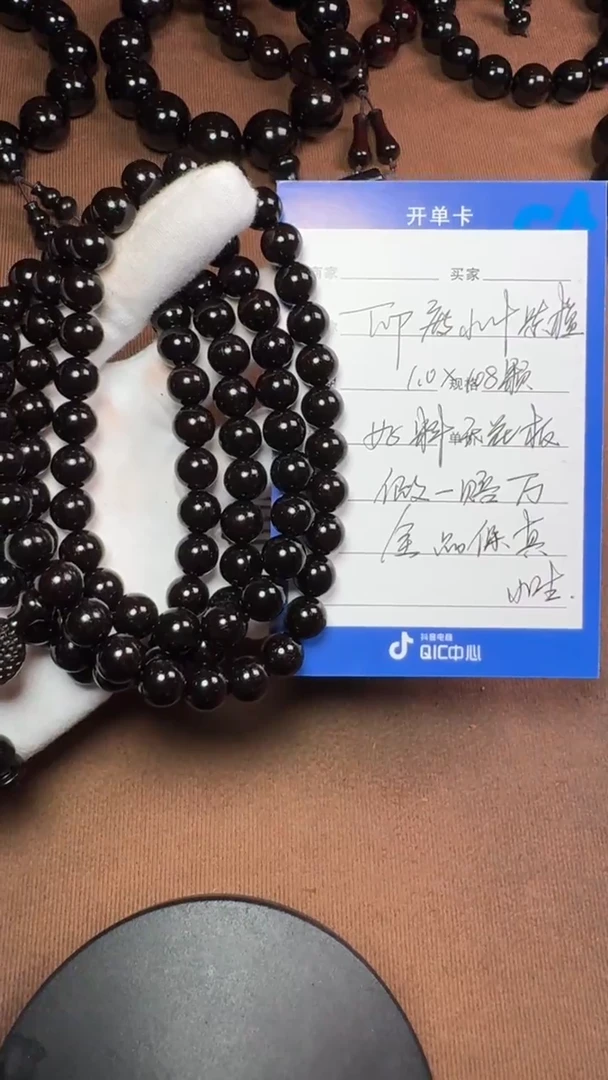 开单卡
买家
印度小叶紫檀
1.0×规格108颗
好料单珠花板
假一赔万
全品保真
抖音电商
QIC中心